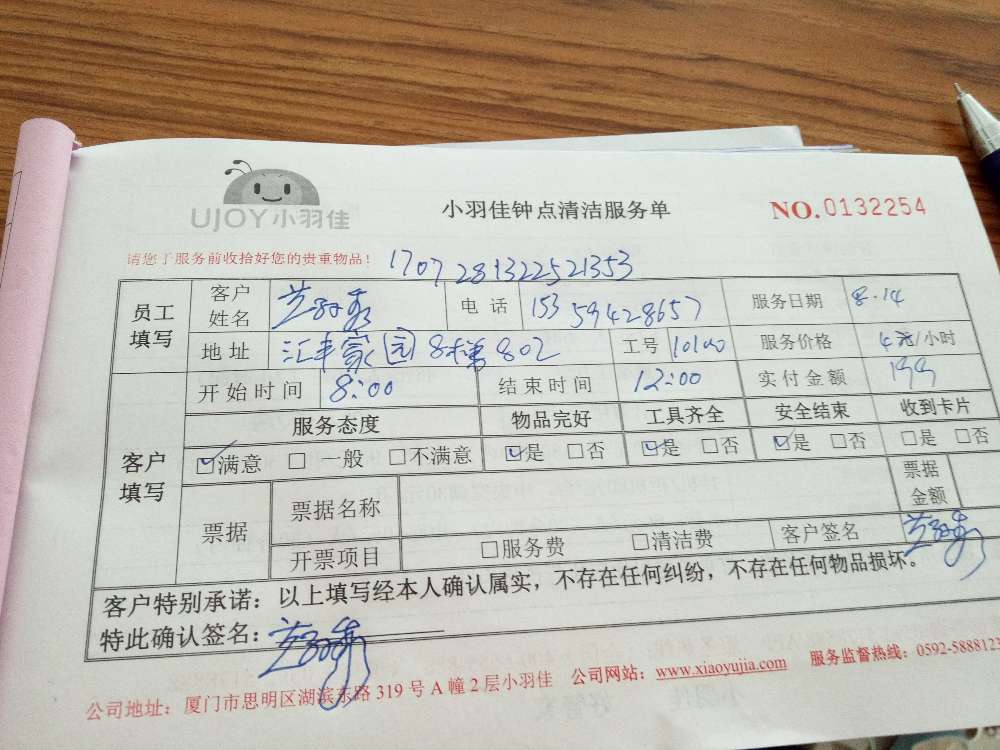 UJOY小羽佳
小羽佳钟点清洁服务单
NO.0132254
请您于服务前收拾好您的贵重物品!
1707281322521353
员工填写 客户姓名 电话 153 59428657 服务日期 8.14
地址 汇丰家园8梯802 工号 服务价格 元/小时
开始时间 8:00 结束时间 12:00 实付金额 199
客户填写 服务态度 物品完好 工具齐全 安全结束 收到卡片
☑满意 □一般 □不满意 ☑是 □否 ☑是 □否 ☑是 □否 □是 □否
票据 票据名称 票据金额
开票项目 □服务费 □清洁费 客户签名
客户特别承诺:以上填写经本人确认属实,不存在任何纠纷,不存在任何物品损坏。
特此确认签名:
公司地址:厦门市思明区湖滨东路319号A幢2层小羽佳 公司网站:www.xiaoyujia.com 服务监督热线:0592-5888123